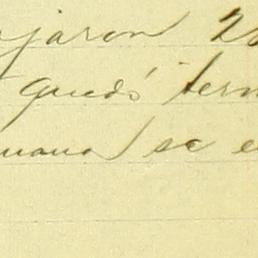 jaron 2
quedó tern
mana se e